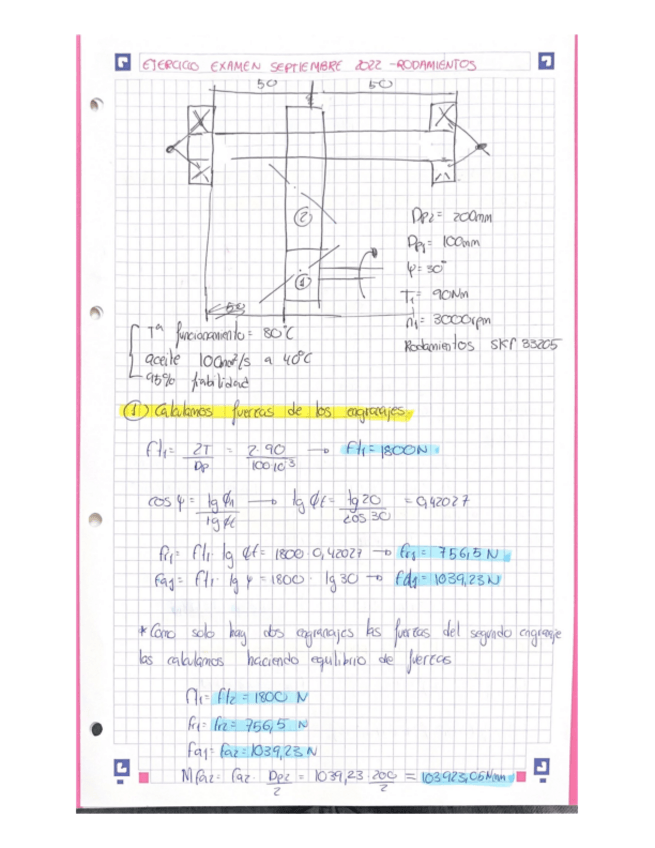 EJERCICIO EXAMEN SEPTIEMBRE 2022 -RODAMIENTOS
50 50
②
①
50
Dp2 = 200mm
Dp1 = 100mm
ψ = 30°
T1 = 90Nm
n1 = 3000rpm
Rodamientos SKF 33205
Tª funcionamiento = 80°C
aceite 100mm²/s a 40°C
95% fiabilidad
① Calculamos fuerzas de los engranajes.
Ft1 = 2T/Dp = 2·90/100·10⁻³ → Ft1 = 1800N
cos ψ = tg ϕn/tg ϕt → tg ϕt = tg20/cos30 = 0,42027
Fr1 = Ft1· tg ϕt = 1800·0,42027 → Fr1 = 756,5 N
Fa1 = Ft1· tg ψ = 1800 · tg30 → Fa1 = 1039,23N
* Como solo hay dos engranajes las fuerzas del segundo engranaje
las calculamos haciendo equilibrio de fuerzas
Ft1 = Ft2 = 1800 N
Fr1 = Fr2 = 756,5 N
Fa1 = Fa2 = 1039,23 N
MFa2 = Fa2 · Dp2/2 = 1039,23 · 200/2 = 103923,05Nmm